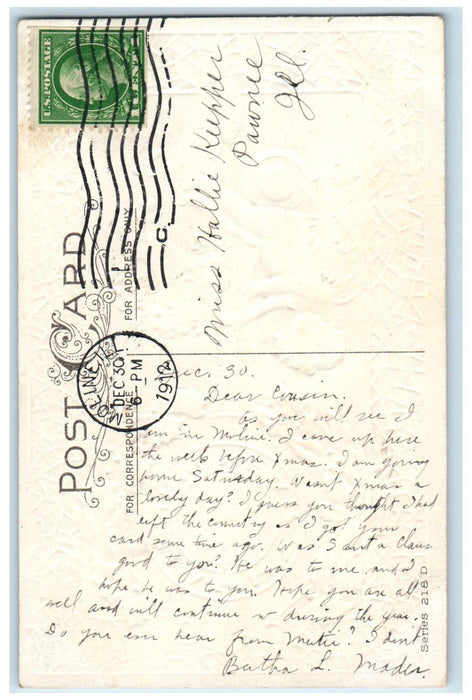 U.S. POSTAGE
1 CENT 1
POST CARD
FOR ADDRESS ONLY
FOR CORRESPONDENCE
C.
MOLINE, ILL.
DEC 30
6 - PM
1912
Miss Hallie Kupper
Pawnee
Ill.
Dec. 30.
Dear Cousin.
As you will see I
am in Moline. I came up here
the week before Xmas. I am going
home Saturday. Wasn't Xmas a
lovely day? I guess you thought I had
left the country as I got your
card some time ago. Was Santa Claus
good to you? He was to me and I
hope he was to you. Hope you are all
well and will continue so during the year.
Do you ever hear from ? I don't
Bertha L. Mader.
Series 218 D